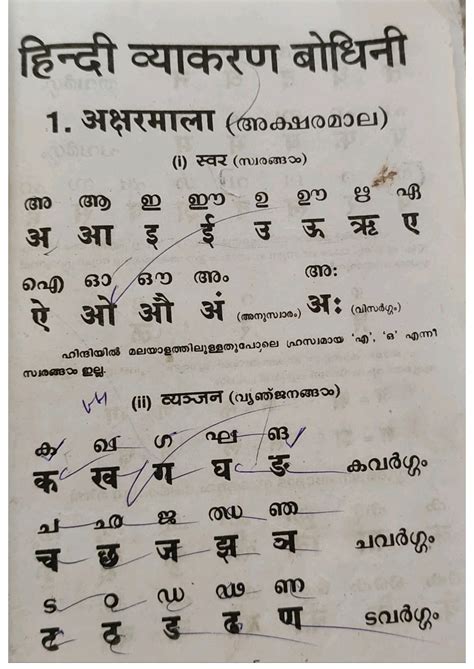 हिन्दी व्याकरण बोधिनी
1. अक्षरमाला (അക്ഷരമാല)
(i) स्वर (സ്വരങ്ങൾ)
അ ആ ഇ ഈ ഉ ഊ ഋ ഏ
अ आ इ ई उ ऊ ऋ ए
ഐ ഓ ഔ അം അഃ
ऐ ओ औ अं (അനുസ്വാരം) अः (വിസർഗ്ഗം)
ഹിന്ദിയിൽ മലയാളത്തിലുള്ളതുപോലെ ഹ്രസ്വമായ 'എ', 'ഒ' എന്നീ
സ്വരങ്ങൾ ഇല്ല.
(ii) व्यञ्जन (വ്യഞ്ജനങ്ങൾ)
ക ഖ ഗ ഘ ങ
क ख ग घ ङ കവർഗ്ഗം
ച ഛ ജ ഝ ഞ
च छ ज झ ञ ചവർഗ്ഗം
ട ഠ ഡ ഢ ണ
ट ठ ड ढ ण ടവർഗ്ഗം